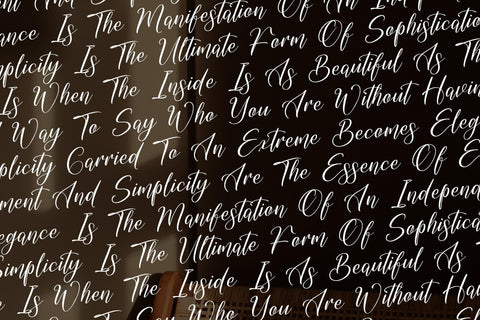 ent And S The Manifestation Of An I
ance Is The Ultimate Form Of Sophisticatio
mplicity Is The Inside Is As Beautiful As Th
Is When The Inside Is As Beautiful As Th
Way To Say Who You Are Without Havin
plicity Carried To An Extreme Becomes Eleg
ment And Simplicity Are The Essence Of E
egance Is The Manifestation Of An Independ
Simplicity Is The Ultimate Form Of Sophistica
e Is When The Inside Is As Beautiful As
To Say Who You Are Without Hav